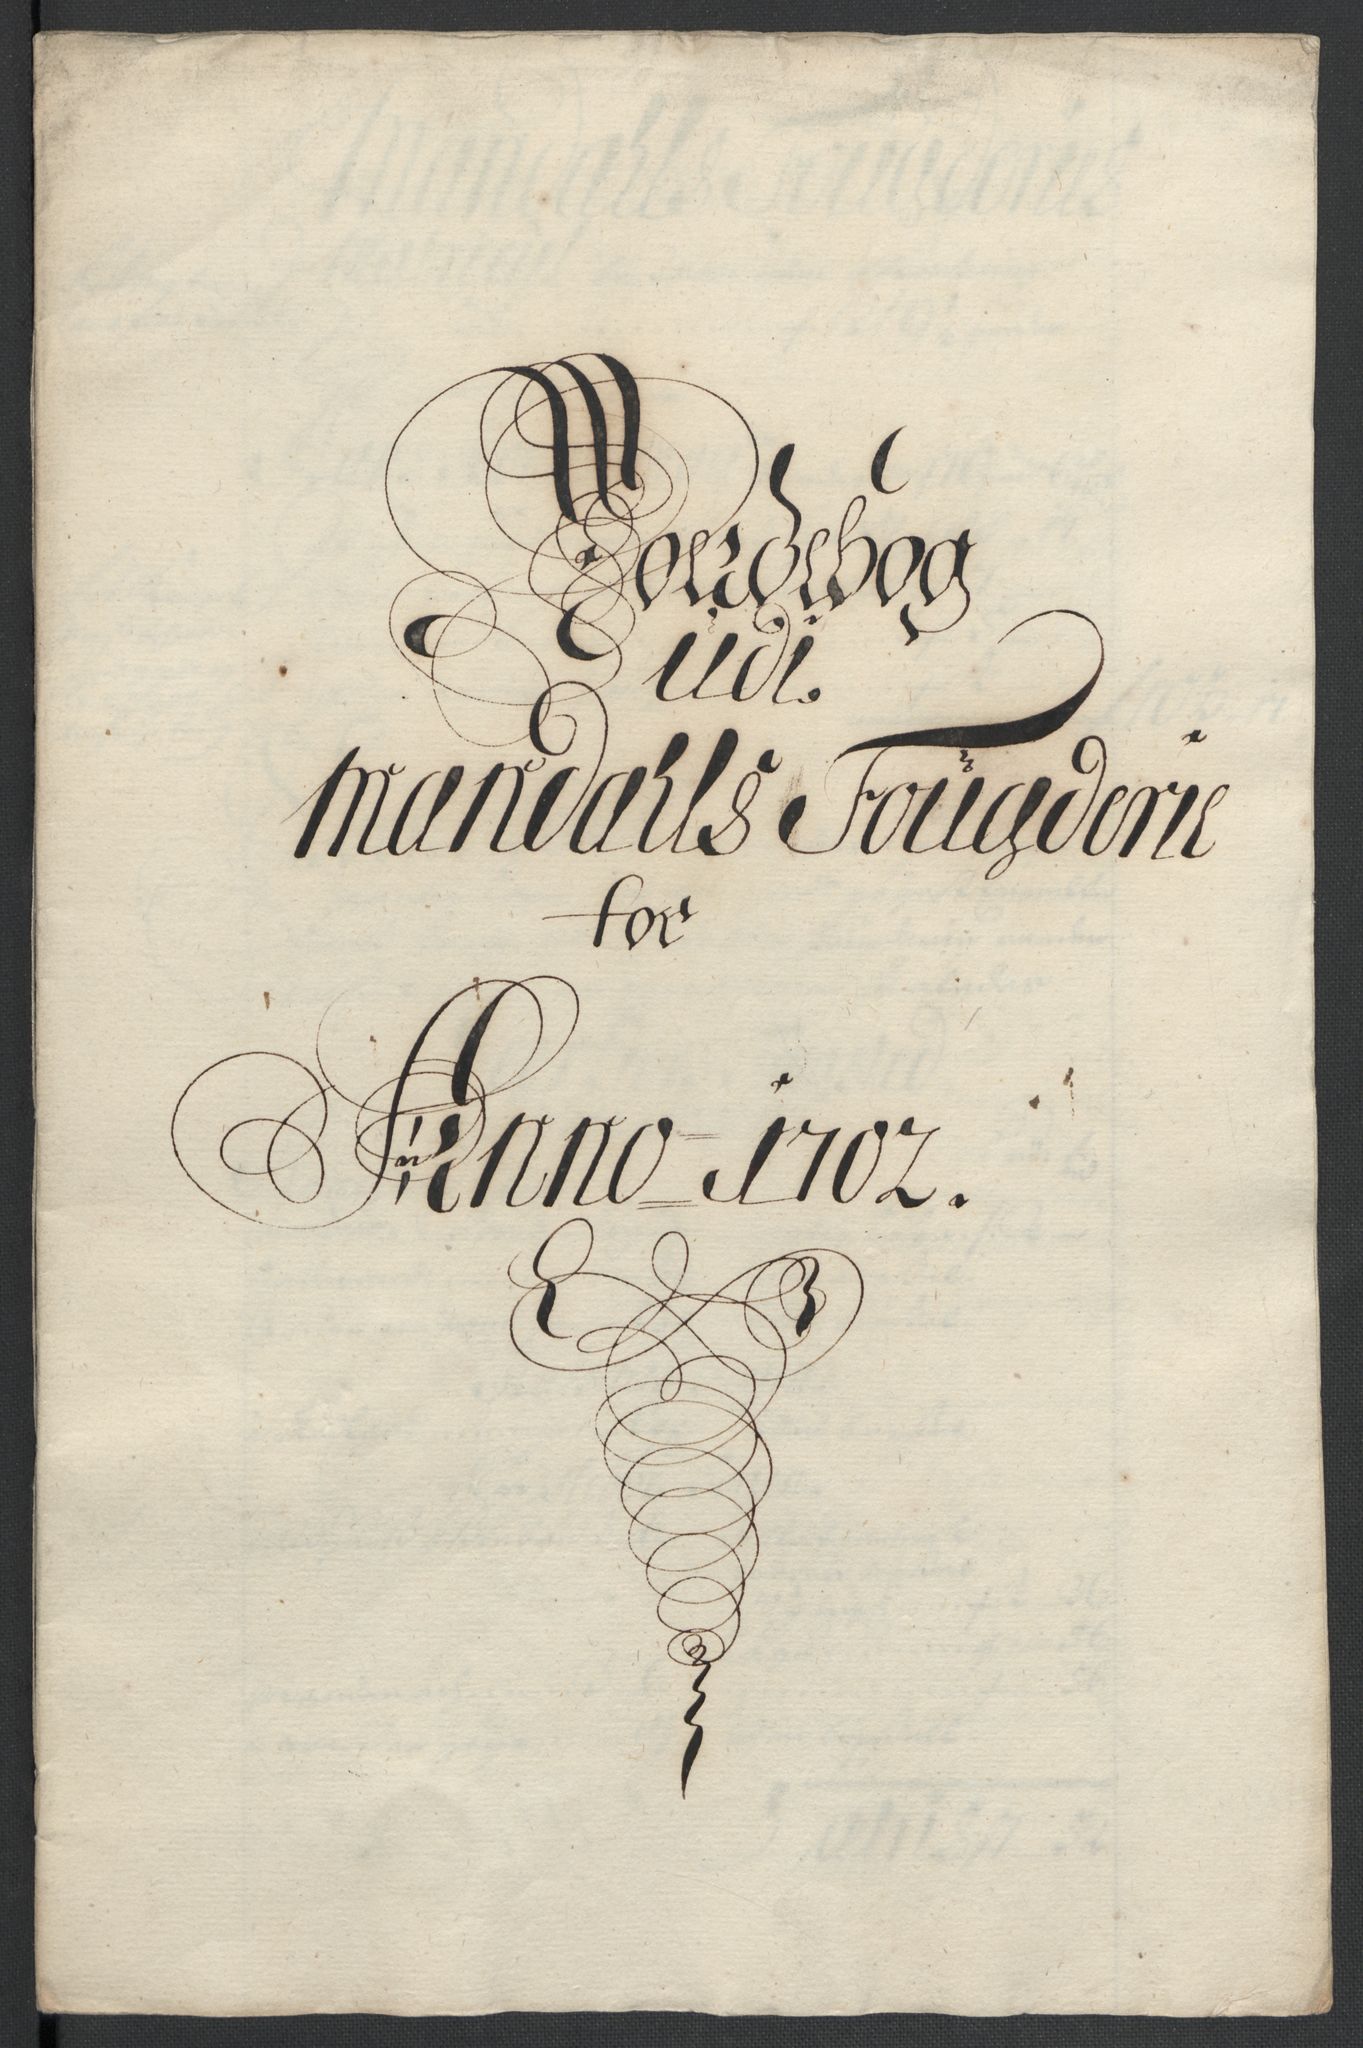 Joerdebog
udi.
Mandahls Fougderie
for
Anno = 1702.